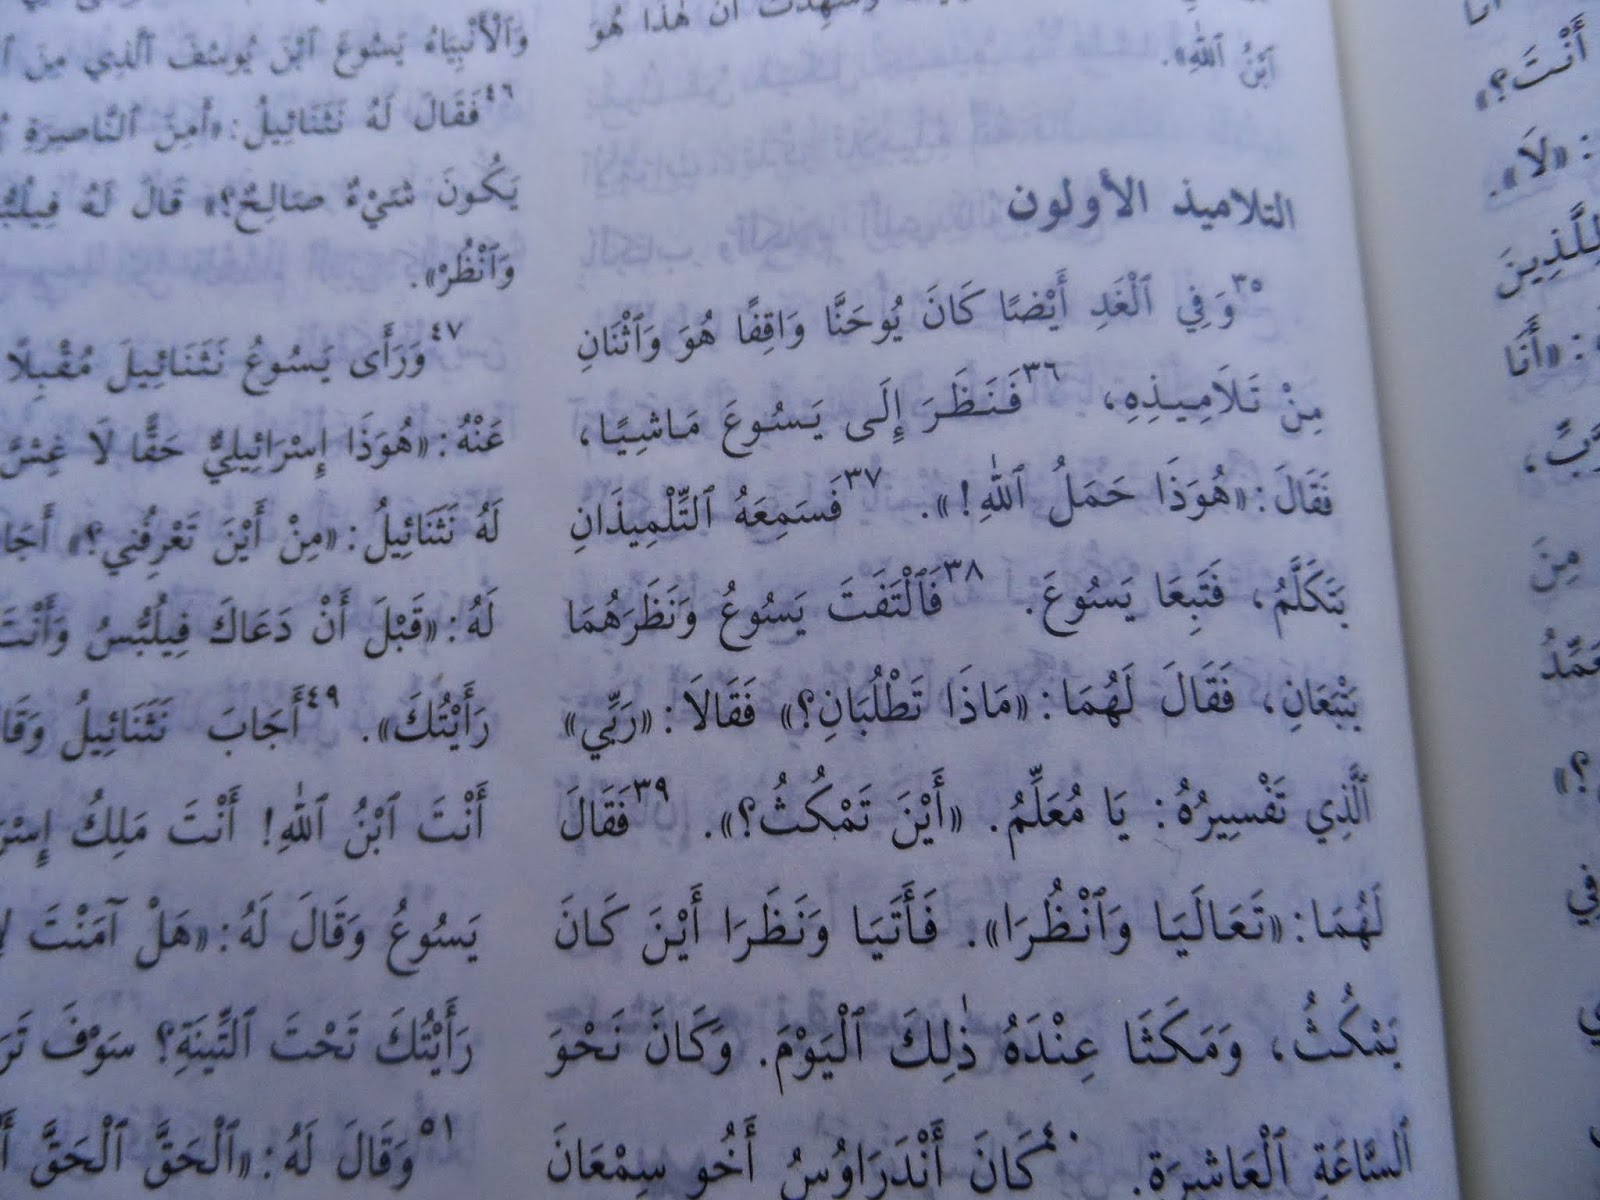 أَنْتَ؟»
: «لَا».
لِلَّذِينَ
: «أَنَا
مِنَ
؟»
فِي
أَنَّ هٰذَا هُوَ
ٱبْنُ ٱللهِ».
التلاميذ الأولون
٣٥وَفِي ٱلْغَدِ أَيْضًا كَانَ يُوحَنَّا وَاقِفًا هُوَ وَٱثْنَانِ
مِنْ تَلَامِيذِهِ، ٣٦فَنَظَرَ إِلَى يَسُوعَ مَاشِيًا،
فَقَالَ: «هُوَذَا حَمَلُ ٱللهِ!». ٣٧فَسَمِعَهُ ٱلتِّلْمِيذَانِ
يَتَكَلَّمُ، فَتَبِعَا يَسُوعَ. ٣٨فَٱلْتَفَتَ يَسُوعُ وَنَظَرَهُمَا
يَتْبَعَانِ، فَقَالَ لَهُمَا: «مَاذَا تَطْلُبَانِ؟» فَقَالَا: «رَبِّي»
ٱلَّذِي تَفْسِيرُهُ: يَا مُعَلِّمُ. «أَيْنَ تَمْكُثُ؟». ٣٩فَقَالَ
لَهُمَا: «تَعَالَيَا وَٱنْظُرَا». فَأَتَيَا وَنَظَرَا أَيْنَ كَانَ
يَمْكُثُ، وَمَكَثَا عِنْدَهُ ذٰلِكَ ٱلْيَوْمَ. وَكَانَ نَحْوَ
ٱلسَّاعَةِ ٱلْعَاشِرَةِ. ٤٠كَانَ أَنْدَرَاوُسُ أَخُو سِمْعَانَ
وَٱلْأَنْبِيَاءُ يَسُوعَ ٱبْنَ يُوسُفَ ٱلَّذِي مِنَ
٤٦فَقَالَ لَهُ نَثَنَائِيلُ: «أَمِنَ ٱلنَّاصِرَةِ
يَكُونَ شَيْءٌ صَالِحٌ؟» قَالَ لَهُ
وَٱنْظُرْ».
٤٧وَرَأَى يَسُوعُ نَثَنَائِيلَ مُقْبِلًا
عَنْهُ: «هُوَذَا إِسْرَائِيلِيٌّ حَقًّا لَا
لَهُ نَثَنَائِيلُ: «مِنْ أَيْنَ تَعْرِفُنِي؟»
لَهُ: «قَبْلَ أَنْ دَعَاكَ فِيلُبُّسُ وَأَنْتَ
رَأَيْتُكَ». ٤٩أَجَابَ نَثَنَائِيلُ
أَنْتَ ٱبْنُ ٱللهِ! أَنْتَ مَلِكُ
يَسُوعُ وَقَالَ لَهُ: «هَلْ آمَنْتَ
رَأَيْتُكَ تَحْتَ ٱلتِّينَةِ؟ سَوْفَ
٥١وَقَالَ لَهُ: «ٱلْحَقَّ ٱلْحَقَّ